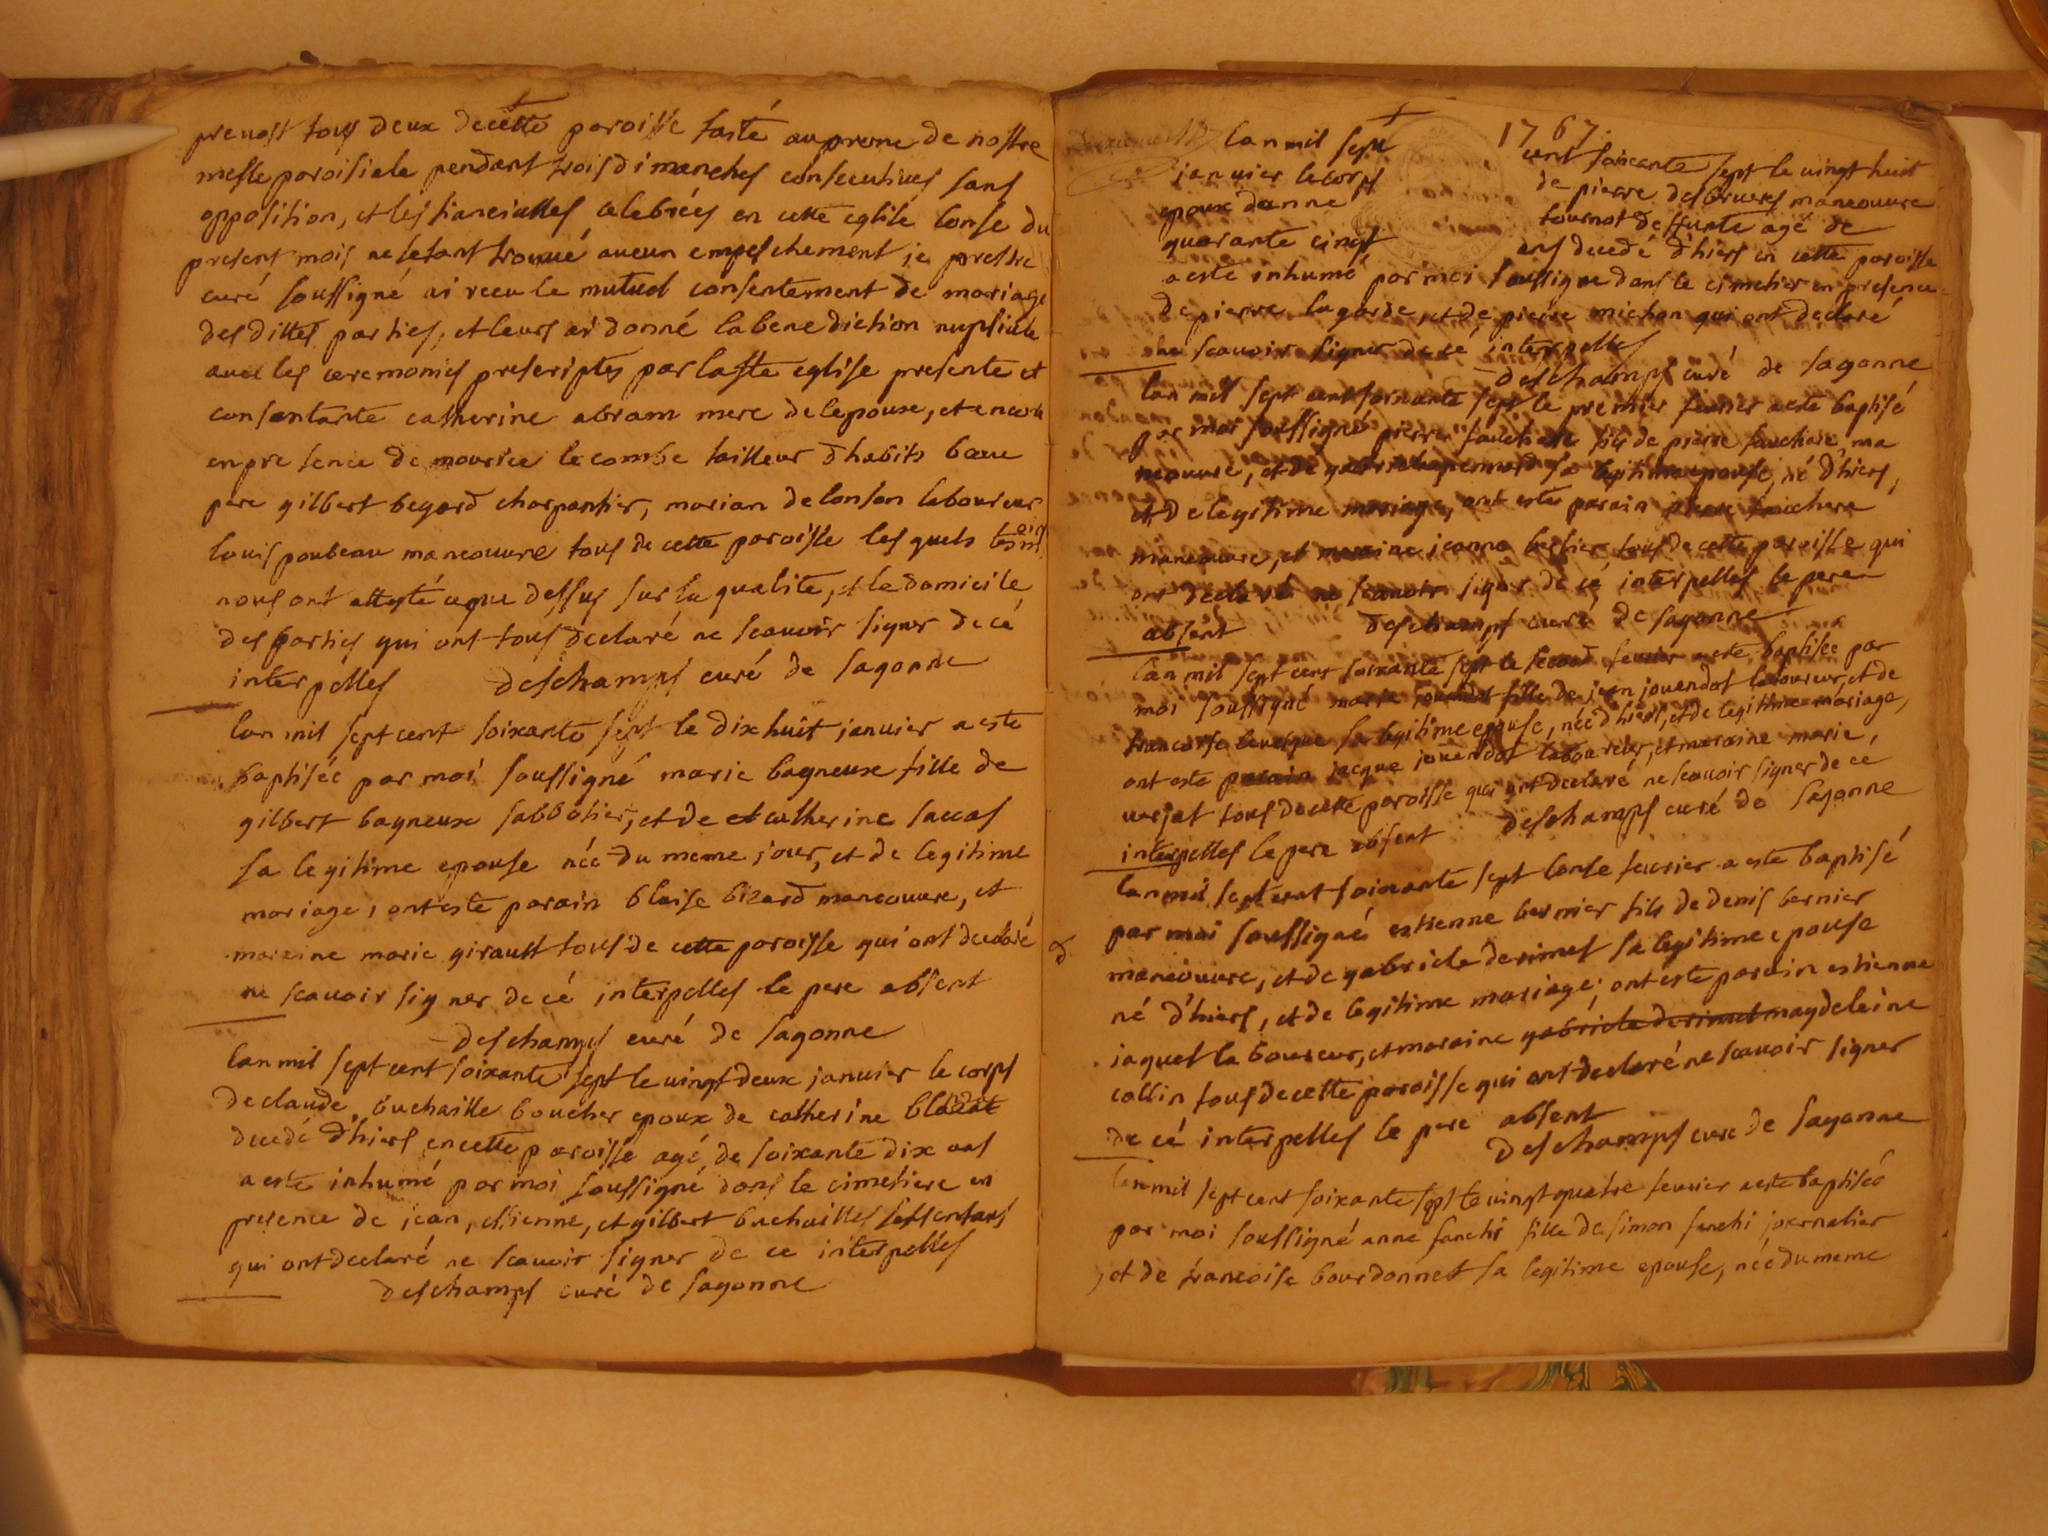 prevost tous deux de cette paroisse faité au prone de nostre
messe paroisiale pendant trois dimanches consecutives sans
opposition, et les fiancialles celebrées en cette eglise l'onse du
present mois ne setant trouvé aucun empeschement je prestre
curé soussigné ai receu le mutuel consentement de mariage
des dittes parties, et leurs ai donné la benediction nuptiale
avec les ceremonies prescriptes par la ste eglise presente et
consentante catherine abram mere de lepouse, et encore
en presence de mourice le combe tailleur dhabits beau
pere gilbert begard charpantier, marian delonson laboureur
louis poubeau maneouvre tous de cette paroisse les quels temoins
nous ont attesté ce que dessus sur la qualite, et le domicile
des parties qui ont tous declaré ne scauoir signer de cé
interpelles deschamps curé de sagonne
lan mil sept cent soixante sept le dix huit januier a este
baptisée par moi soussigné marie bagneux fille de
gilbert bagneux sabbotier, et de et catherine saccas
sa legitime epouse née du meme jour, et de legitime
mariage, ont este parain blaise bizard maneouvre, et
maraine marie girault tous de cette paroisse qui ont declaré
ne scauoir signer de cé interpelles le pere absent
deschamps curé de sagonne
lan mil sept cent soixante sept le uingt deux januier le corps
de claude buchaille boucher epoux de catherine
decedé d'hiers en cette paroisse agé de soixante dix ans
a este inhumé par moi soussigné dans le cimetiere en
presence de jean, estienne, et gilbert buchailles ses enfans
qui ont declaré ne scauoir signer de ce interpelles
deschamps curé de sagonne
1767.
lan mil sept cent soixante sept le uingt huit
januier le corps de pierre desbruères maneouure
epoux danne tournot deffunte agé de
quarante cinqt ans decedé d'hiers en cette paroisse
a este inhumé par moi soussigne dans le cimetier en presence
de pierre lagarde, et de pierre michon qui ont declaré
ne scauoir signer de cé interpelles
deschamps curé de sagonne
lan mil sept cent soixante sept le premier feurier a este baptisé
par moi soussigné pierre fauchere fils de pierre fauchere ma
neouure, et de sa legitime epouse, né d'hiers,
et de legitime mariage, ont este parain pierre fauchere
maneouure, et maraine jeanne tous de cette paroisse qui
ont declaré ne scauoir signer de cé interpelles le pere
absent deschamps curé de sagonne
lan mil sept cent soixante sept le second feurier a este baptisée par
moi soussigné marie jouendot fille de jean jouendot laboureur, et de
francoise leuesque sa legitime epouse, née d'hiers, et de legitime mariage,
ont este parain jacque jouendot laboureur, et maraine marie
tous de cette paroisse qui ont declaré ne scauoir signer de cé
interpelles le pere absent deschamps curé de sagonne
lan mil sept cent soixante sept lonse feurier a este baptisé
par moi soussigné estienne bernier fils de denis bernier
maneouure, et de gabriele derimes sa legitime epouse
né d'hiers, et de legitime mariage; ont este parain estienne
jaques laboureur, et maraine gabriele derimes magdeleine
collin tous de cette paroisse qui ont declaré ne scauoir signer
de cé interpelles le pere absent
deschamps cure de sagonne
lan mil sept cent soixante sept le uingt quatre feurier a este baptisée
par moi soussigné anne fanchi fille de simon fanchi journalier
, et de francoise bourdonnet sa legitime epouse, née du meme